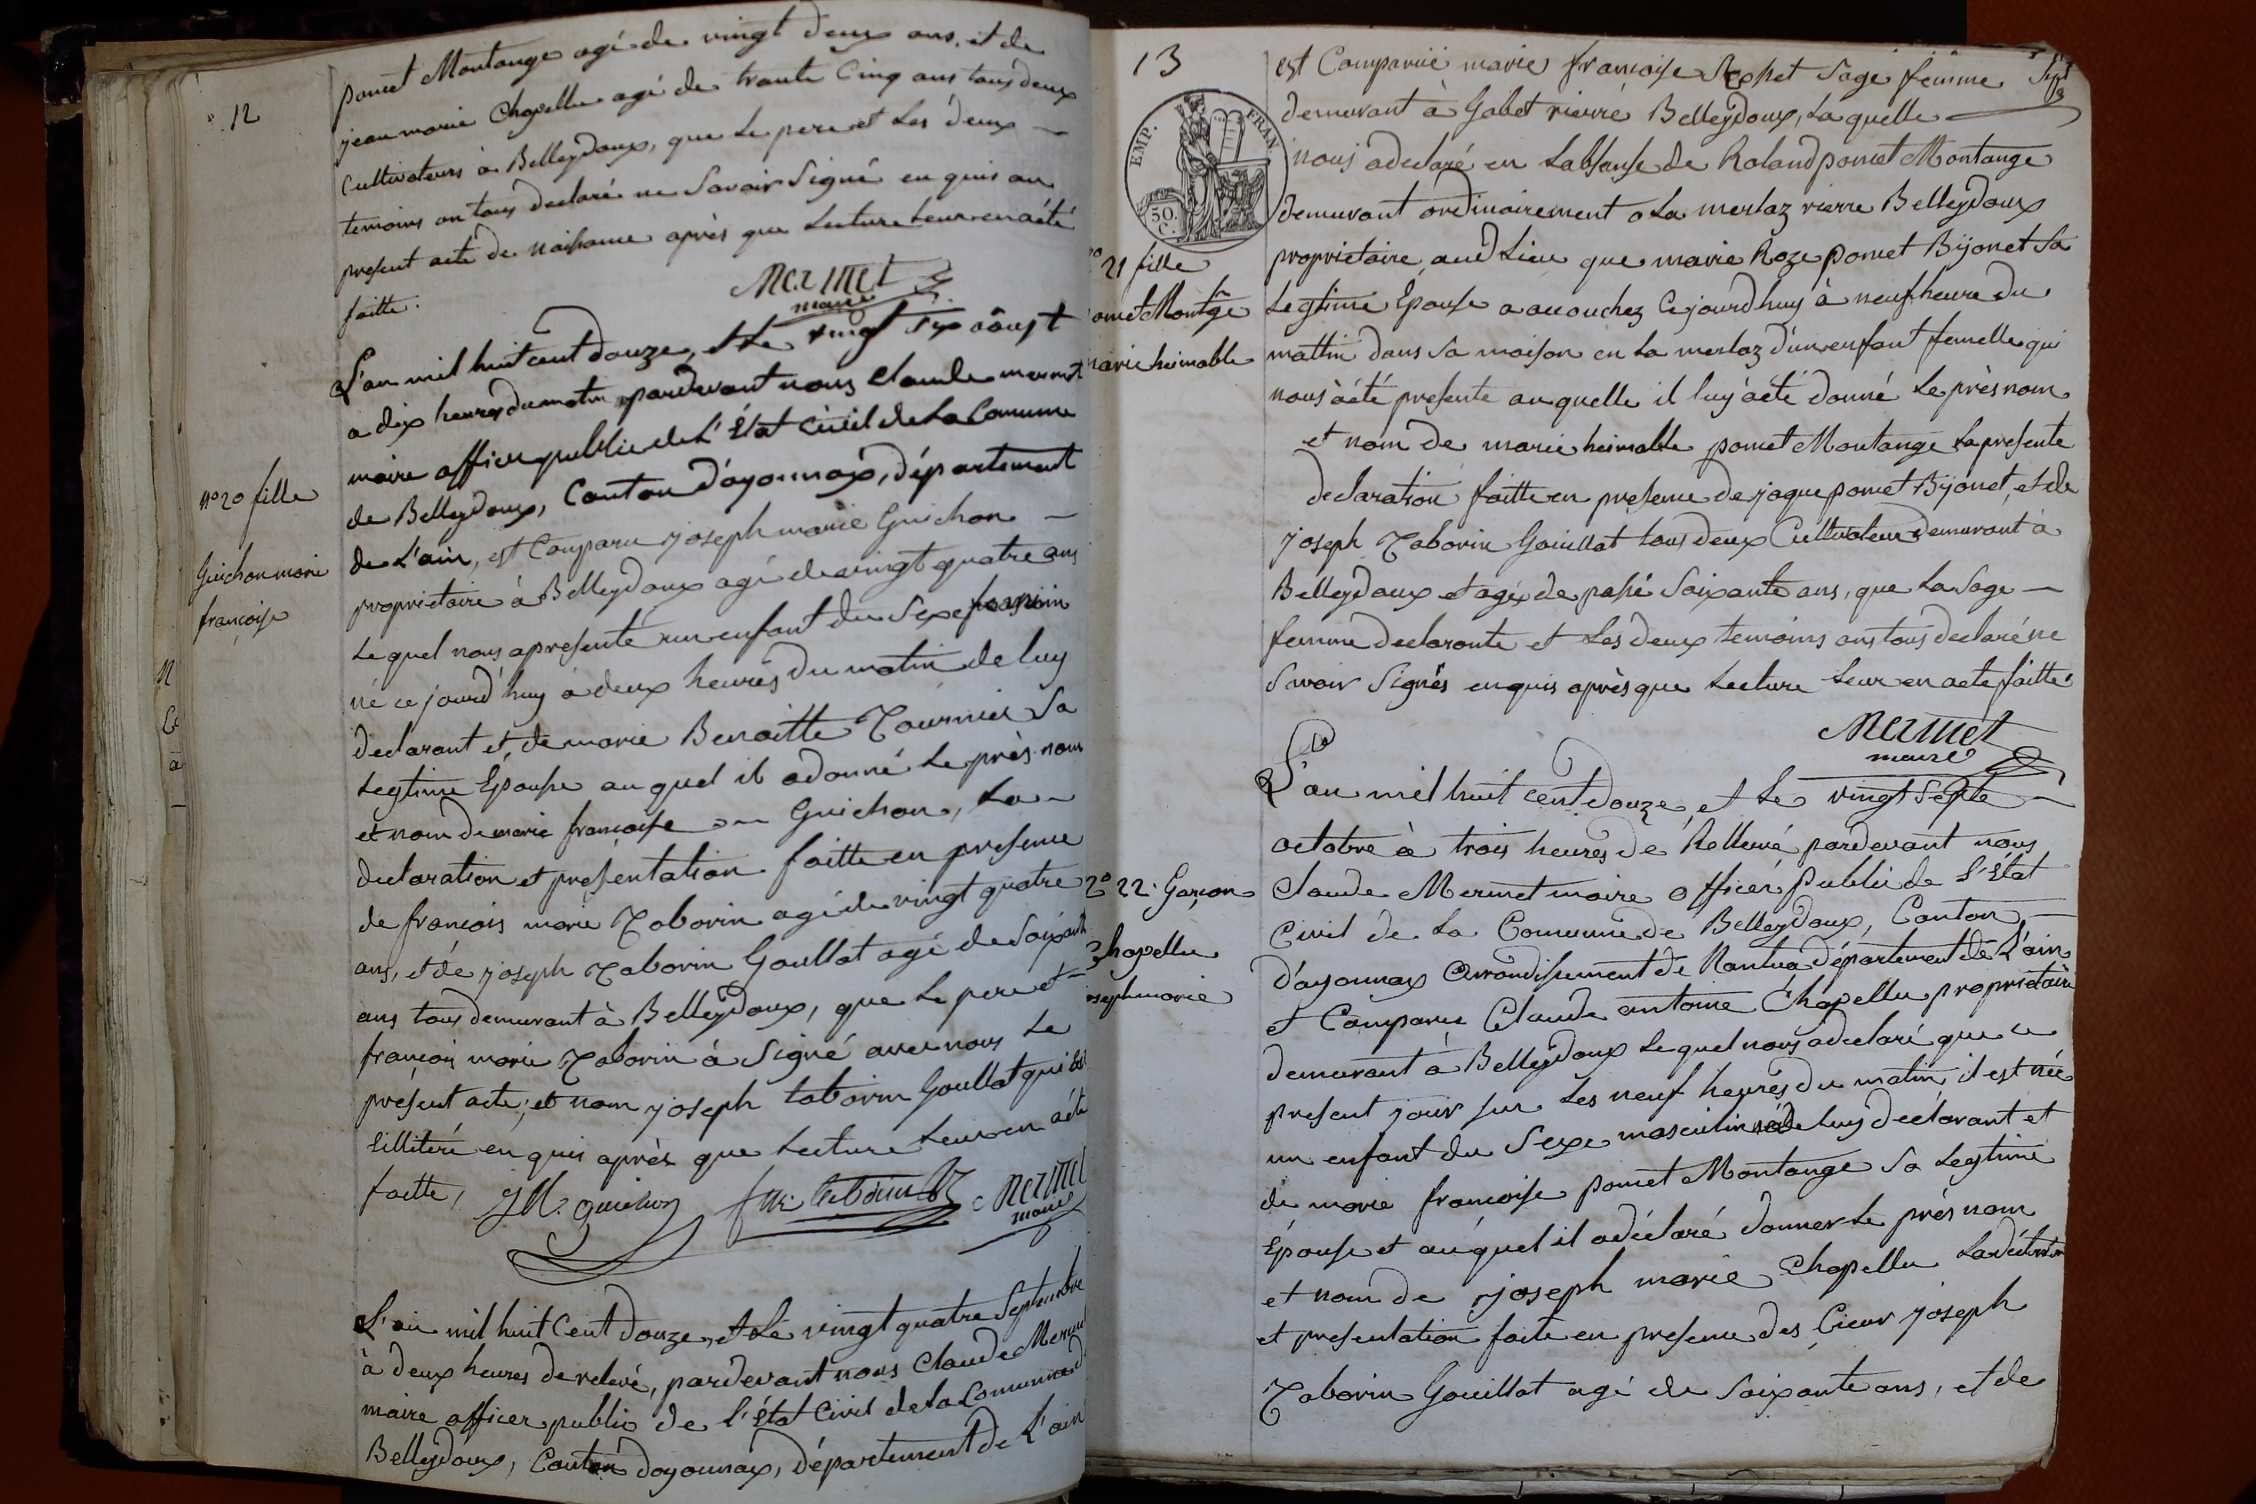 12
poncet Montange agé de vingt deux ans, et de
jean marie Chapellu agé de trante Cinq ans tous deux
Cultivateurs à Belleydoux, que Le pere et Les deux
temoins on tous declaré ne Savoir Signé en quis au
present acte de naissance après que Lecture Leur en a été
faitte.
Mermet
maire
L'an mil huit cent douze, et Le vingt six aôust
a dix heures du matin pardevant nous Claude mermet
maire officier public de L'État Civil de La Comune
de Belleydoux, Canton d'oyonnax, département
n° 20 fille
de L'ain, est Comparu joseph marie Guichon
Guichon marie
françoise
proprietaire à Belleydoux agé de vingt quatre ans
Lequel nous a presenté un enfant du Sexe
né ce jourd'huy à deux heures du matin de luy
declarant et de marie Benoitte Tournier Sa
Legtime Épouse au quel il a donné Le près nom
et nom de marie francoise Guichon, La
declaration et présentation faitte en presence
de francois marie Taborin agé de vingt quatre
ans, et de joseph Taborin Goullat agé de Soixante
ans tous demurant à Belleydoux, que Le pere et
francois marie Taborin à Signé avec nous Le
présent acte; et nom joseph taborin Goullat qui est
illiteré en quis après que Lecture Leur en a été
faitte,
JM. guichon
Mermet
maire
L'an mil huit Cent douze, et Le vingt quatre Septembre
à deux heures de relevé, pardevant nous Claude Mermet
maire officer public de l'État Civil de La Comunne de
Belleydoux, Canton doyonnax, département de L'ain
13
EMP. FRAN
50. C.
est Comparuë marie francoise Sage femme
demurant à Gobet rierre Belleydoux, La quelle
nous a declaré en Labsanse de Roland poncet Montange
demurant ordinairement a La merlaz rierre Belleydoux
21 fille
proprietaire, aud Lieu que marie Roze poncet Bijonet Sa
Montge
Legtime Épouse a acouchez Ce jourd'huy à neuf heure du
marie heimable
mattin dans Sa maison en La merlaz d'un enfant femelle qui
nous à été presente au quelle il luy à été donné Le près nom
et nom de marie heimable poncet Montange La presente
declaration faitte en presence de jaque poncet Bijonet, et de
joseph Taborin Gouillat tous deux Cultivateur demurant à
Belleydoux et agés de passé Soixante ans, que La Sage
femme declarante et Les deux temoins ons tous declaré ne
Savoir Signés enquis après que Lecture Leur en a ete faitte.
Mermet
maire
L'an mil huit cent douze, et Le vingt Septe
octobre à trois heures de Rellevé pardevant nous
22. Garcon
Claude Mermet maire officer Public de L'État
Civil de La Comunne de Belleydoux, Canton
Chapellu
d'oyonnax Arrondissement de Nantua département de L'ain
joseph marie
et Comparu Claude antoine Chapellu proprietaire
demurant à Belleydoux Lequel nous a declaré que ce
present jour sur Les neuf heures du matin il est née
un enfant du Sexe masculin né de Luy déclarant et
de marie francoise poncet Montange Sa Legtime
Épouse et au quel il a déclaré donner Le près nom
et nom de joseph marie Chapellu La déclaration
et presentation faite en presence des Cieur joseph
Taborin Gouillat agé de Soixante ans, et de